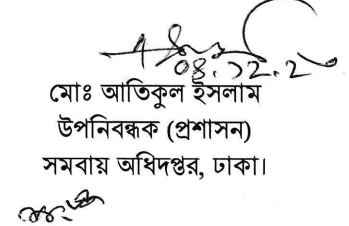 ০৪.১২.২
মোঃ আতিকুল ইসলাম
উপনিবন্ধক (প্রশাসন)
সমবায় অধিদপ্তর, ঢাকা।